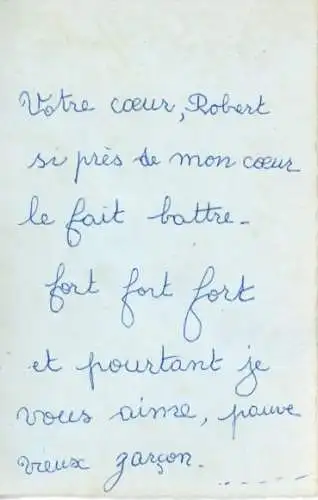 Votre cœur, Robert
si près de mon cœur
le fait battre -
fort fort fort
et pourtant je
vous aime, pauve
vieux garçon. - - - - -